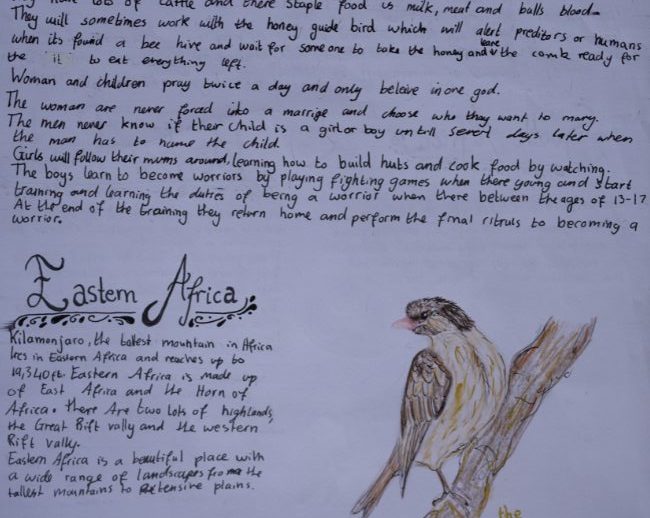 have lots of cattle and there staple food is milk, meat and balls blood.
They will sometimes work with the honey guide bird which will alert preditors or humans
when its found a bee hive and wait for someone to take the honey and leave the comb ready for
the to eat everything left.
Woman and children pray twice a day and only beleive in one god.
The woman are never forced into a marrige and choose who they want to marry.
The men never know if their child is a girl or boy untill days later when
the man has to name the child.
Girls will follow their mums around, learning how to build huts and cook food by watching.
The boys learn to become worriors by playing fighting games when there young and start
training and learning the duties of being a worrior when there between the ages of 13-17
At the end of the training they return home and perform the final rituals to becoming a
worrior.
Eastern Africa
Kilamonjaro, the tallest mountain in Africa
lies in Eastern Africa and reaches up to
19,340ft. Eastern Africa is made up
of East Africa and the Horn of
Africa. there Are two lots of highlands,
the Great Rift vally and the western
Rift vally.
Eastern Africa is a beautiful place with
a wide range of landscapes from the
tallest mountains to extensive plains.
the